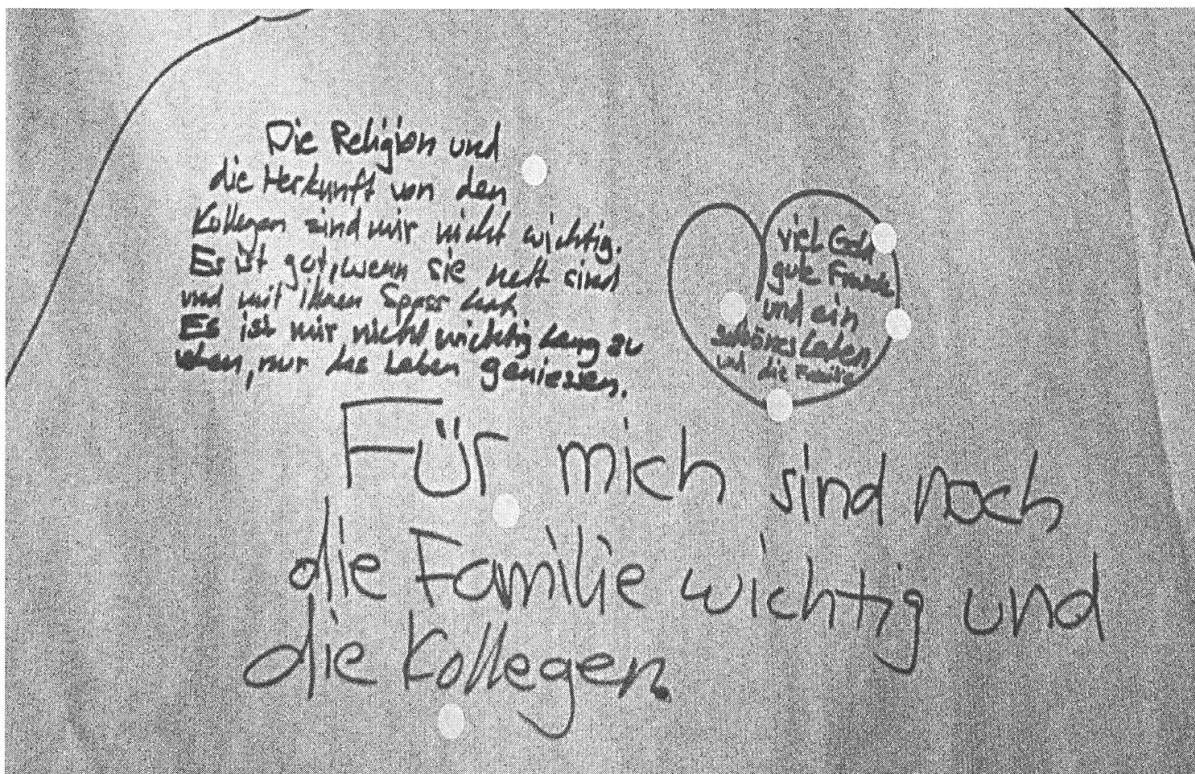 Die Religion und
die Herkunft von den
Kollegen sind mir nicht wichtig.
Es ist gut, wenn sie nett sind
und mit ihnen Spass hat.
Es ist mir nicht wichtig lang zu
leben, nur das Leben geniessen.
viel Geld
gute Freunde
und ein
schönes Leben
und die Familie
Für mich sind noch
die Familie wichtig und
die Kollegen.